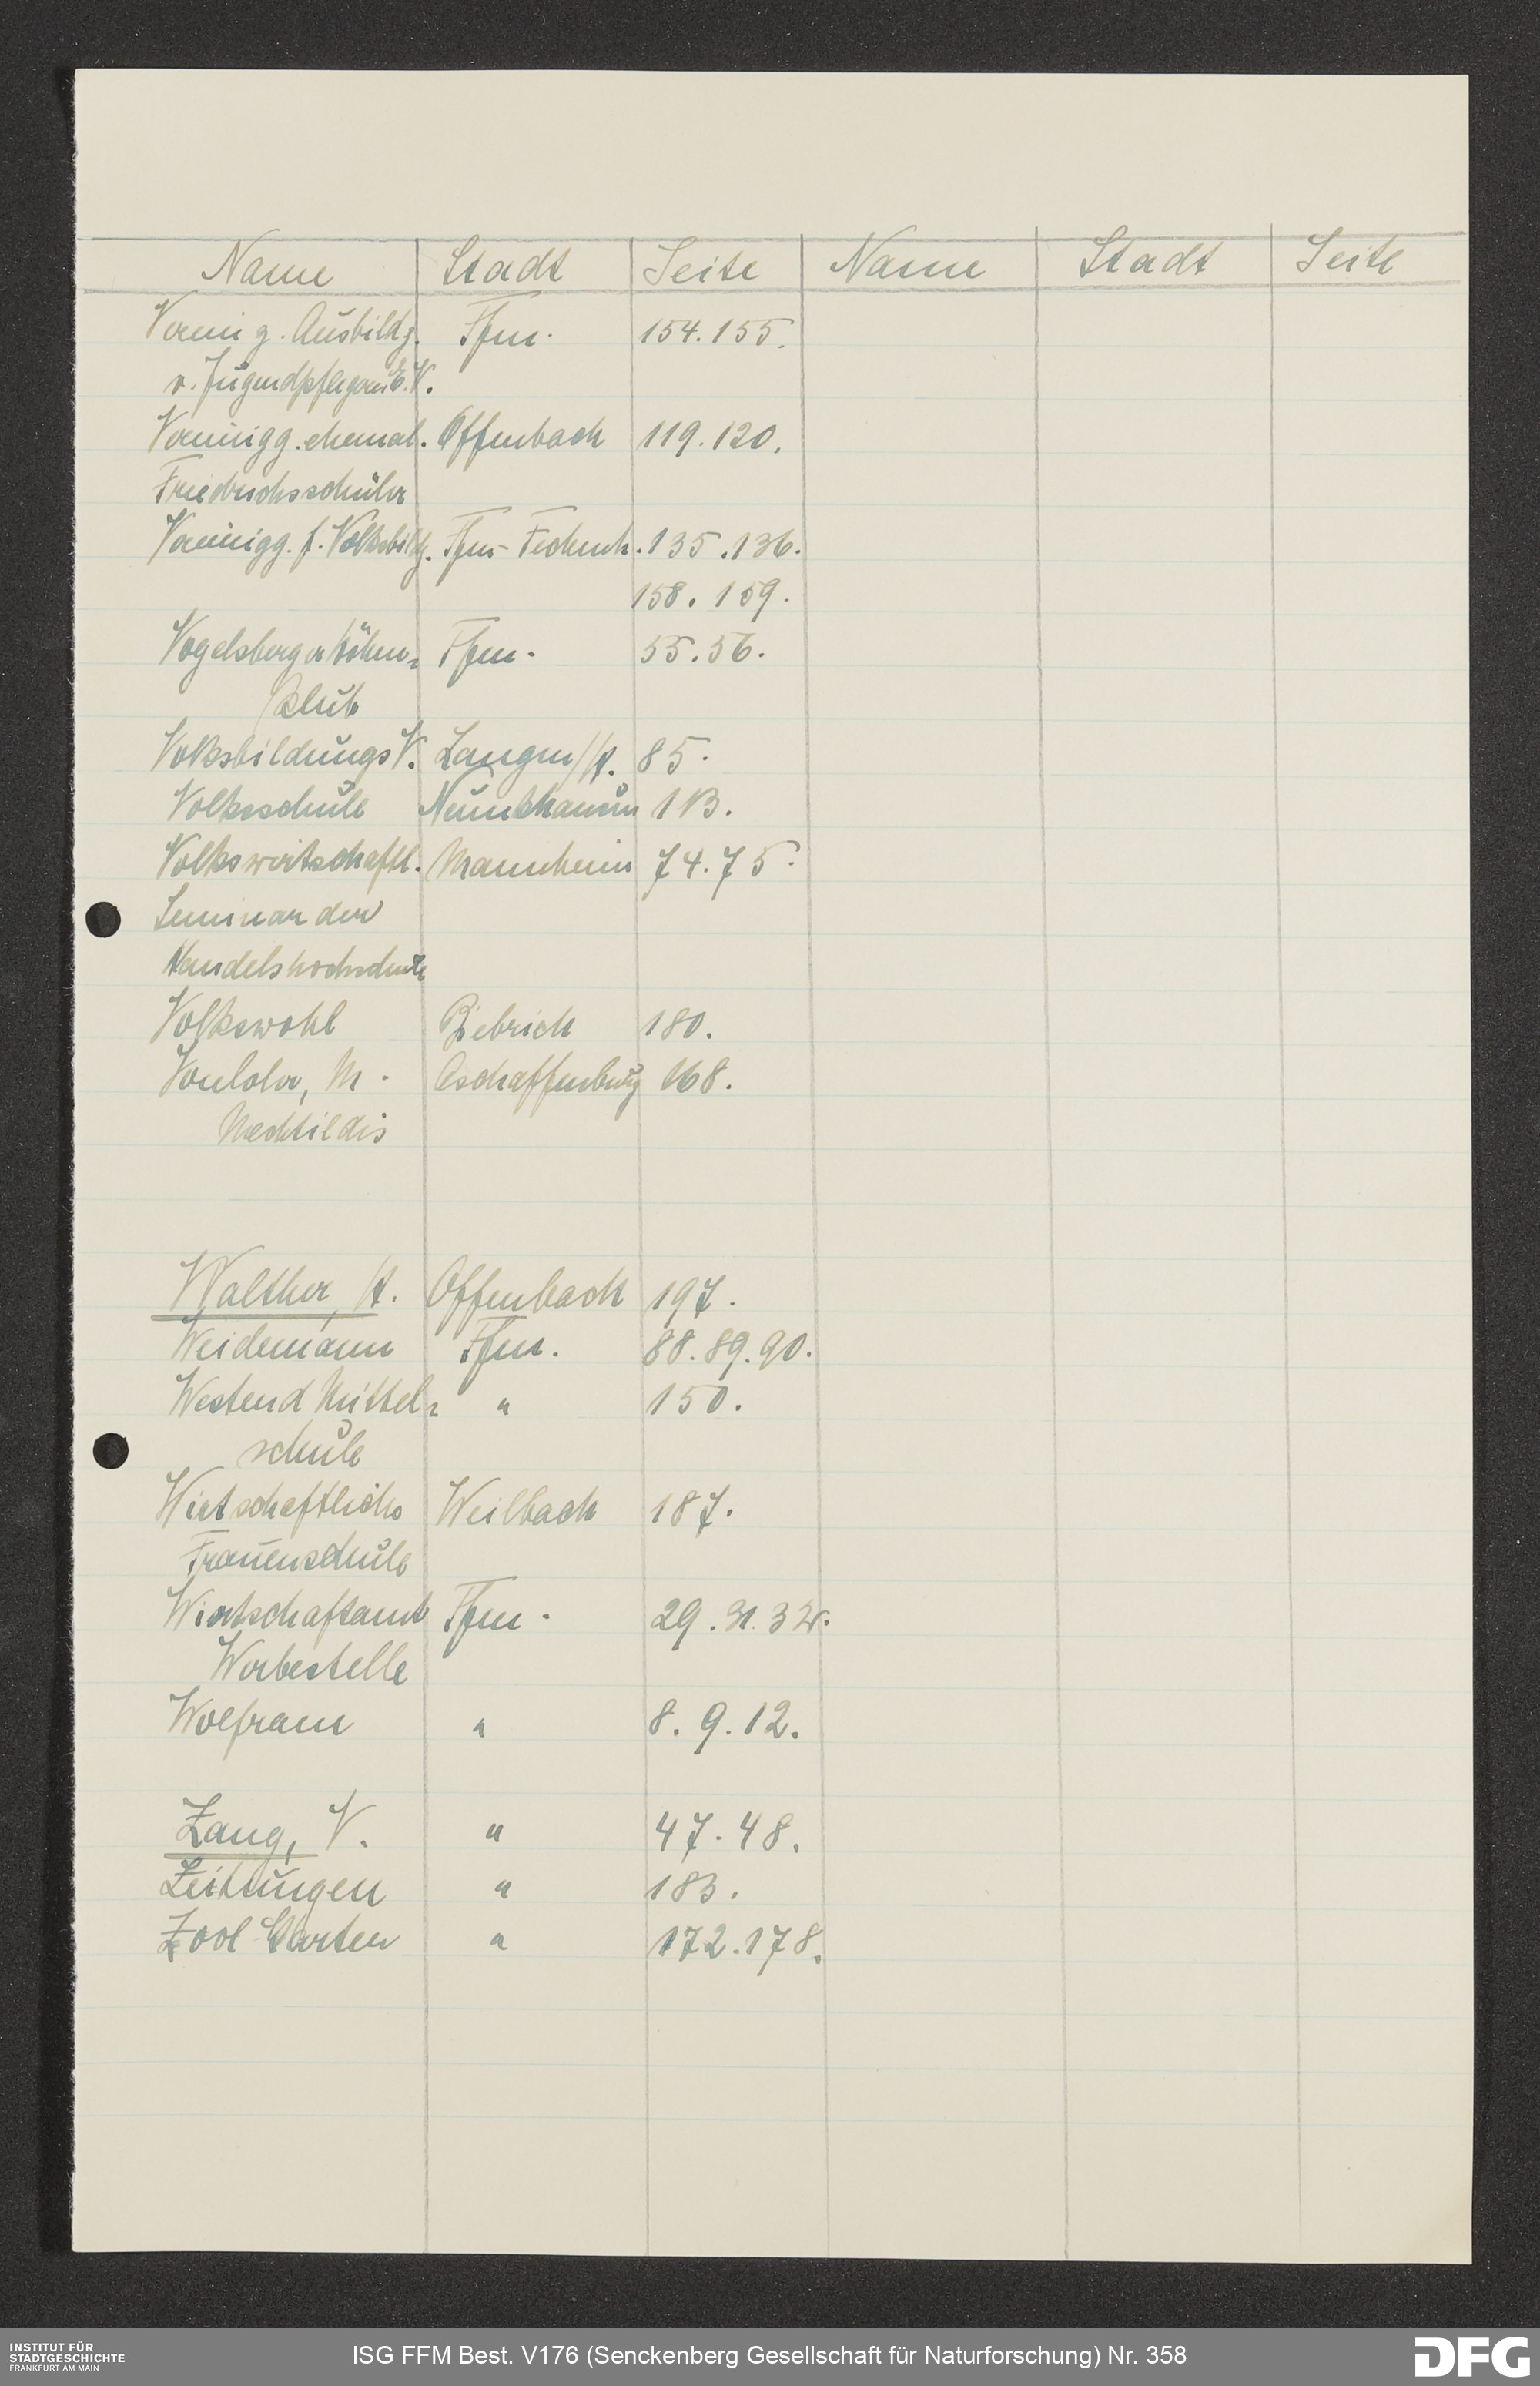 Name Stadt Seite Name Stadt Seite
Verein z. Ausbildg. Ffm. 154.155.
v. Jugendpflegern E.V.
Vereinigg. ehemal. Offenbach 119.120.
Friedrichsschüler
Vereinigg. f. Volksbildg. Ffm-Fechenh. 135.136.
158. 159.
Vogelsberger Höhen- Ffm. 55.56.
Club
VolksbildungsV. Langen/H. 85.
Volksschule 113.
Volkswirtschaftl. Mannheim 74.75.
Seminar der
Handelshochschule
Volkswohl Biebrich 180.
M. Aschaffenburg 168.
Mechtildis
Walther, H. Offenbach 197.
Weidemann Ffm. 88.89.90.
Westend Mittel- " 150.
schule
Wirtschaftliche Weilbach 187.
Frauenschule
Wirtschaftsamt Ffm. 29.31.32.
Werbestelle
Wolfram " 8.9.12.
Zang, V. " 47.48.
Zeitungen " 183.
Zool Garten " 172.178.
INSTITUT FÜR
STADTGESCHICHTE
FRANKFURT AM MAIN
ISG FFM Best. V176 (Senckenberg Gesellschaft für Naturforschung) Nr. 358
DFG